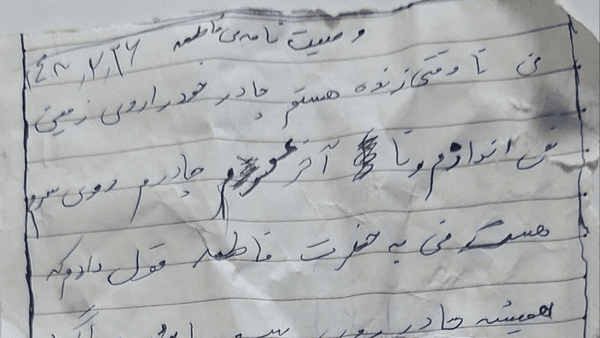 وصیت نامه‌ی فاطمه
من تا وقتی زنده هستم چادر خود را روی زمین
نمی اندازم و تا آخر عمرم چادرم روی سرم
هست من به حضرت فاطمه قول دادم که
همیشه چادر روی